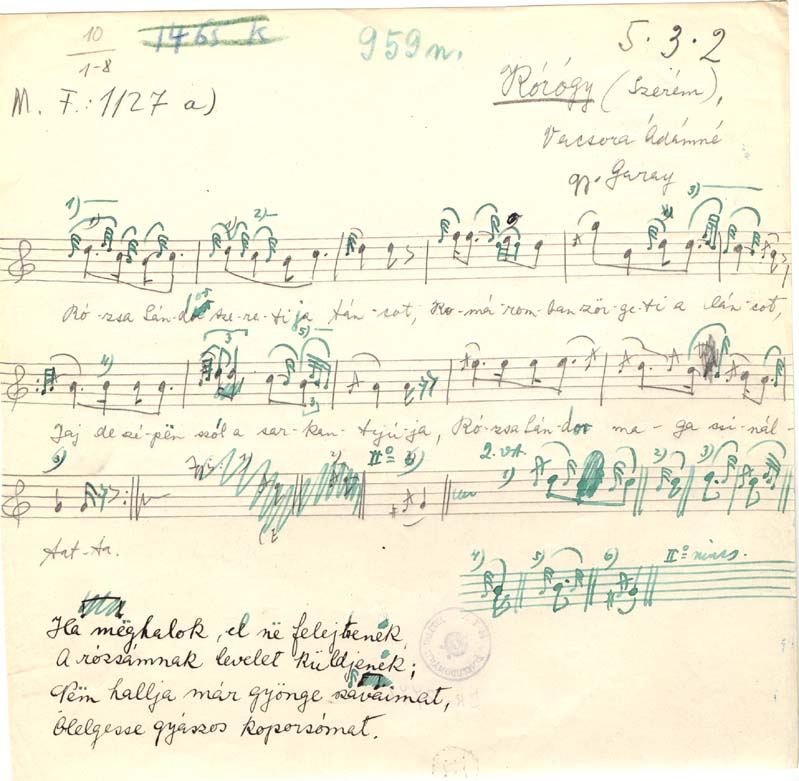 10
1-8
1465 k
959 n.
5.3.2
M. F.: 1127 a)
Kórógy (Szerém),
Vacsora Ádámné
gy. Garay
1) 1) 1) 2) 3)
Ró-zsa Sán-dor sze-re-ti ja tán-sot, Ko-má-rom-ban zör-ge-ti a lán-sot,
4) 3 5) 3
Jaj de szé-pën szól a sar-kan-tyú-ja, Ró-zsa Sán-dor ma-ga csi-nál-
6) 1) 2) IIº 6) 2. vsz. 1) 2) 3)
tat-ta.
4) 5) 6) IIº nincs.
Ha mëghalok, el në felejtenék,
A rózsámnak levelet küldjenék;
Nëm hallja már gyönge szavaimat,
Ölelgesse gyászos koporsómat.